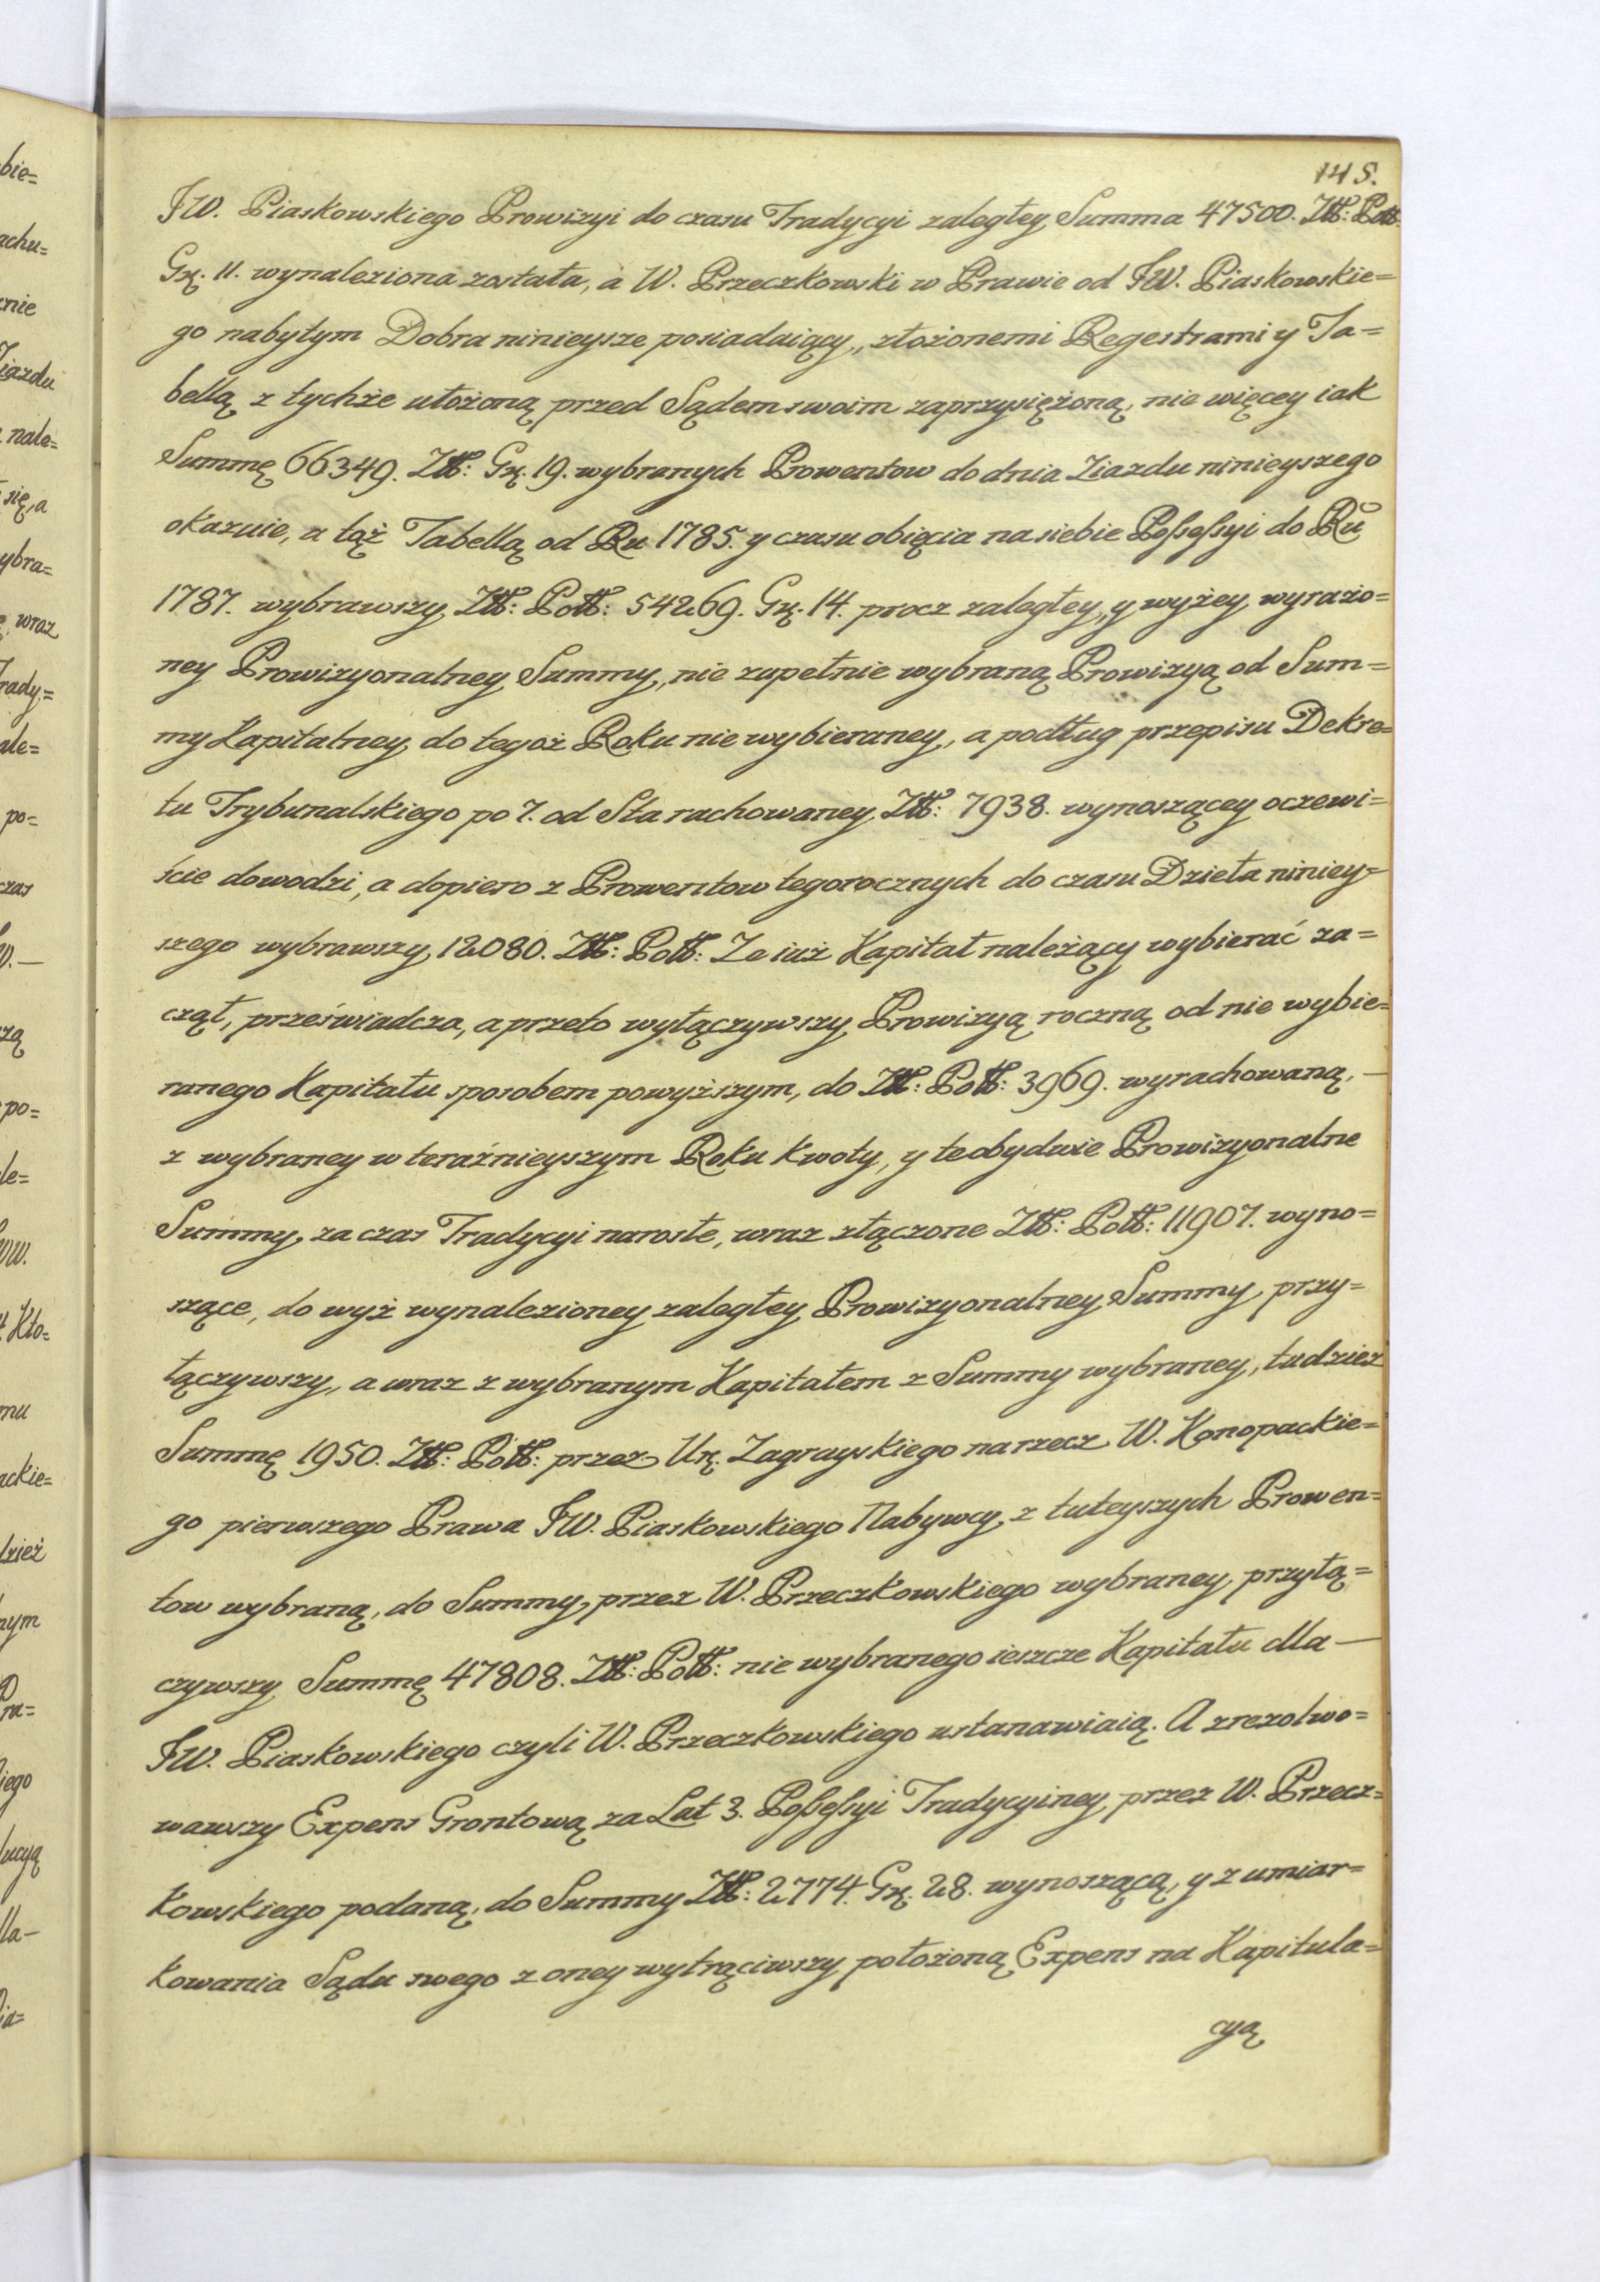 145.
JW. Piaskowskiego Prowizyi do czasu Tradycyi zaległey Summa 47500. Złł: Poll:
Gr. 11. wynaleziona została, a W. Przeczkowski w Prawie od JW. Piaskowskie=
go nabytym Dobra ninieysze posiadaiący, złożonemi Regestrami y Ta=
bellą z tychże ułożoną przed Sądem swoim zaprzysiężoną, nie więcey iak
Summę 66349. Złł: Gr. 19. wybranych Prowentow do dnia Ziazdu ninieyszego
okazuie, a tąż Tabellą od Ru 1785. y czasu obięcia na siebie Possessyi do Ru
1787. wybrawszy Złł: Poll: 54269. Gr. 14. procz zaległey, y wyżey wyrażo=
ney Prowizyonalney Summy, nie zupełnie wybraną Prowizyą od Sum=
my Kapitalney do tegoż Roku nie wybieraney, a podług przepisu Dekre=
tu Trybunalskiego po 7. od Sta rachowaney Złł: 7938. wynoszącey oczewi=
ście dowodzi, a dopiero z Prowentow tegorocznych do czasu Dzieła niniey=
szego wybrawszy 12080. Złł: Poll: Ze iuż Kapitał należący wybierać za=
czął, przeświadcza, a przeto wyłączywszy Prowizyą roczną od nie wybie=
ranego Kapitału sposobem powyższym, do Złł: Poll: 3969. wyrachowaną, —
z wybraney w teraźnieyszym Roku kwoty, y te obydwie Prowizyonalne
Summy, za czas Tradycyi narosłe, wraz złączone Złł: Poll: 11907. wyno=
szące, do wyż wynalezioney zaległey Prowizyonalney Summy, przy=
łączywszy, a wraz z wybranym Kapitałem z Summy wybraney, tudzież
Summę 1950. Złł: Poll: przez Ur. Zagrayskiego na rzecz W. Konopackie=
go pierwszego Prawa JW. Piaskowskiego Nabywcy z tuteyszych Prowen=
tow wybraną, do Summy, przez W. Przeczkowskiego wybraney, przyłą=
czywszy Summę 47808. Złł: Poll: nie wybranego ieszcze Kapitału dla —
JW. Piaskowskiego czyli W. Przeczkowskiego ustanawiaią. A zrezolwo=
wawszy Expens Grontową za Lat 3. Possessyi Tradycyiney przez W. Przecz=
kowskiego podaną, do Summy Złł: 2774. Gr. 28. wynoszącą, y z umiar=
kowania Sądu swego z oney wytrąciwszy położoną Expens na Kapitula=
cyą